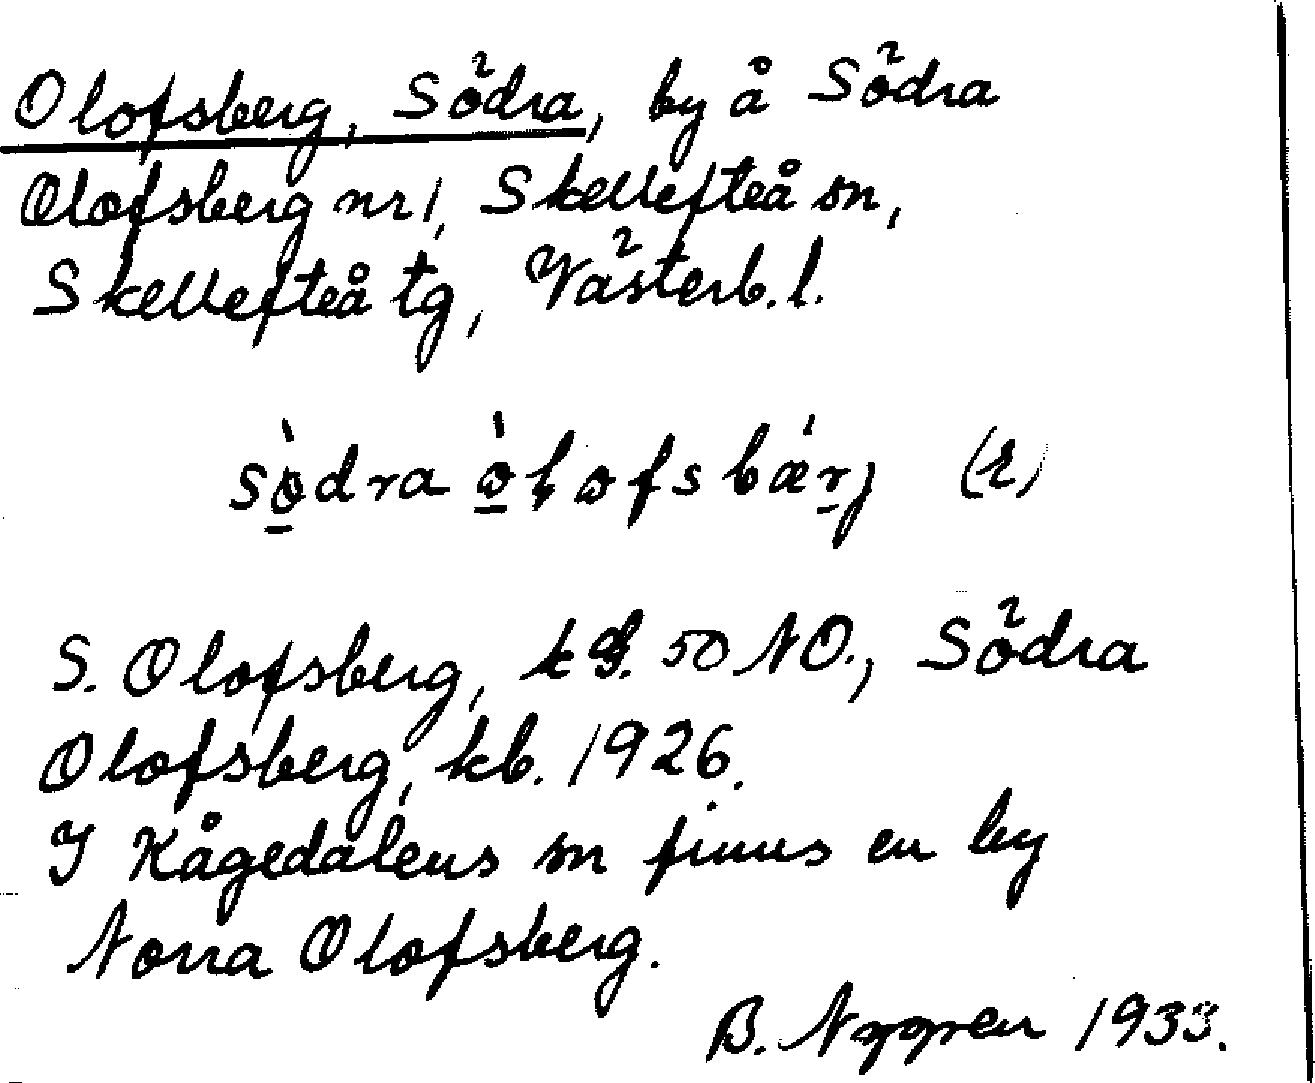 Olofsberg, Södra, by å Södra
Olofsberg nr 1, Skellefteå sn,
Skellefteå tg, Västerb. l.
S. Olofsberg, k G. 50 NO., Södra
Olofsberg, kb. 1926.
I Kågedalens sn finns en by
Norra Olofsberg.
B. Nygren 1933.